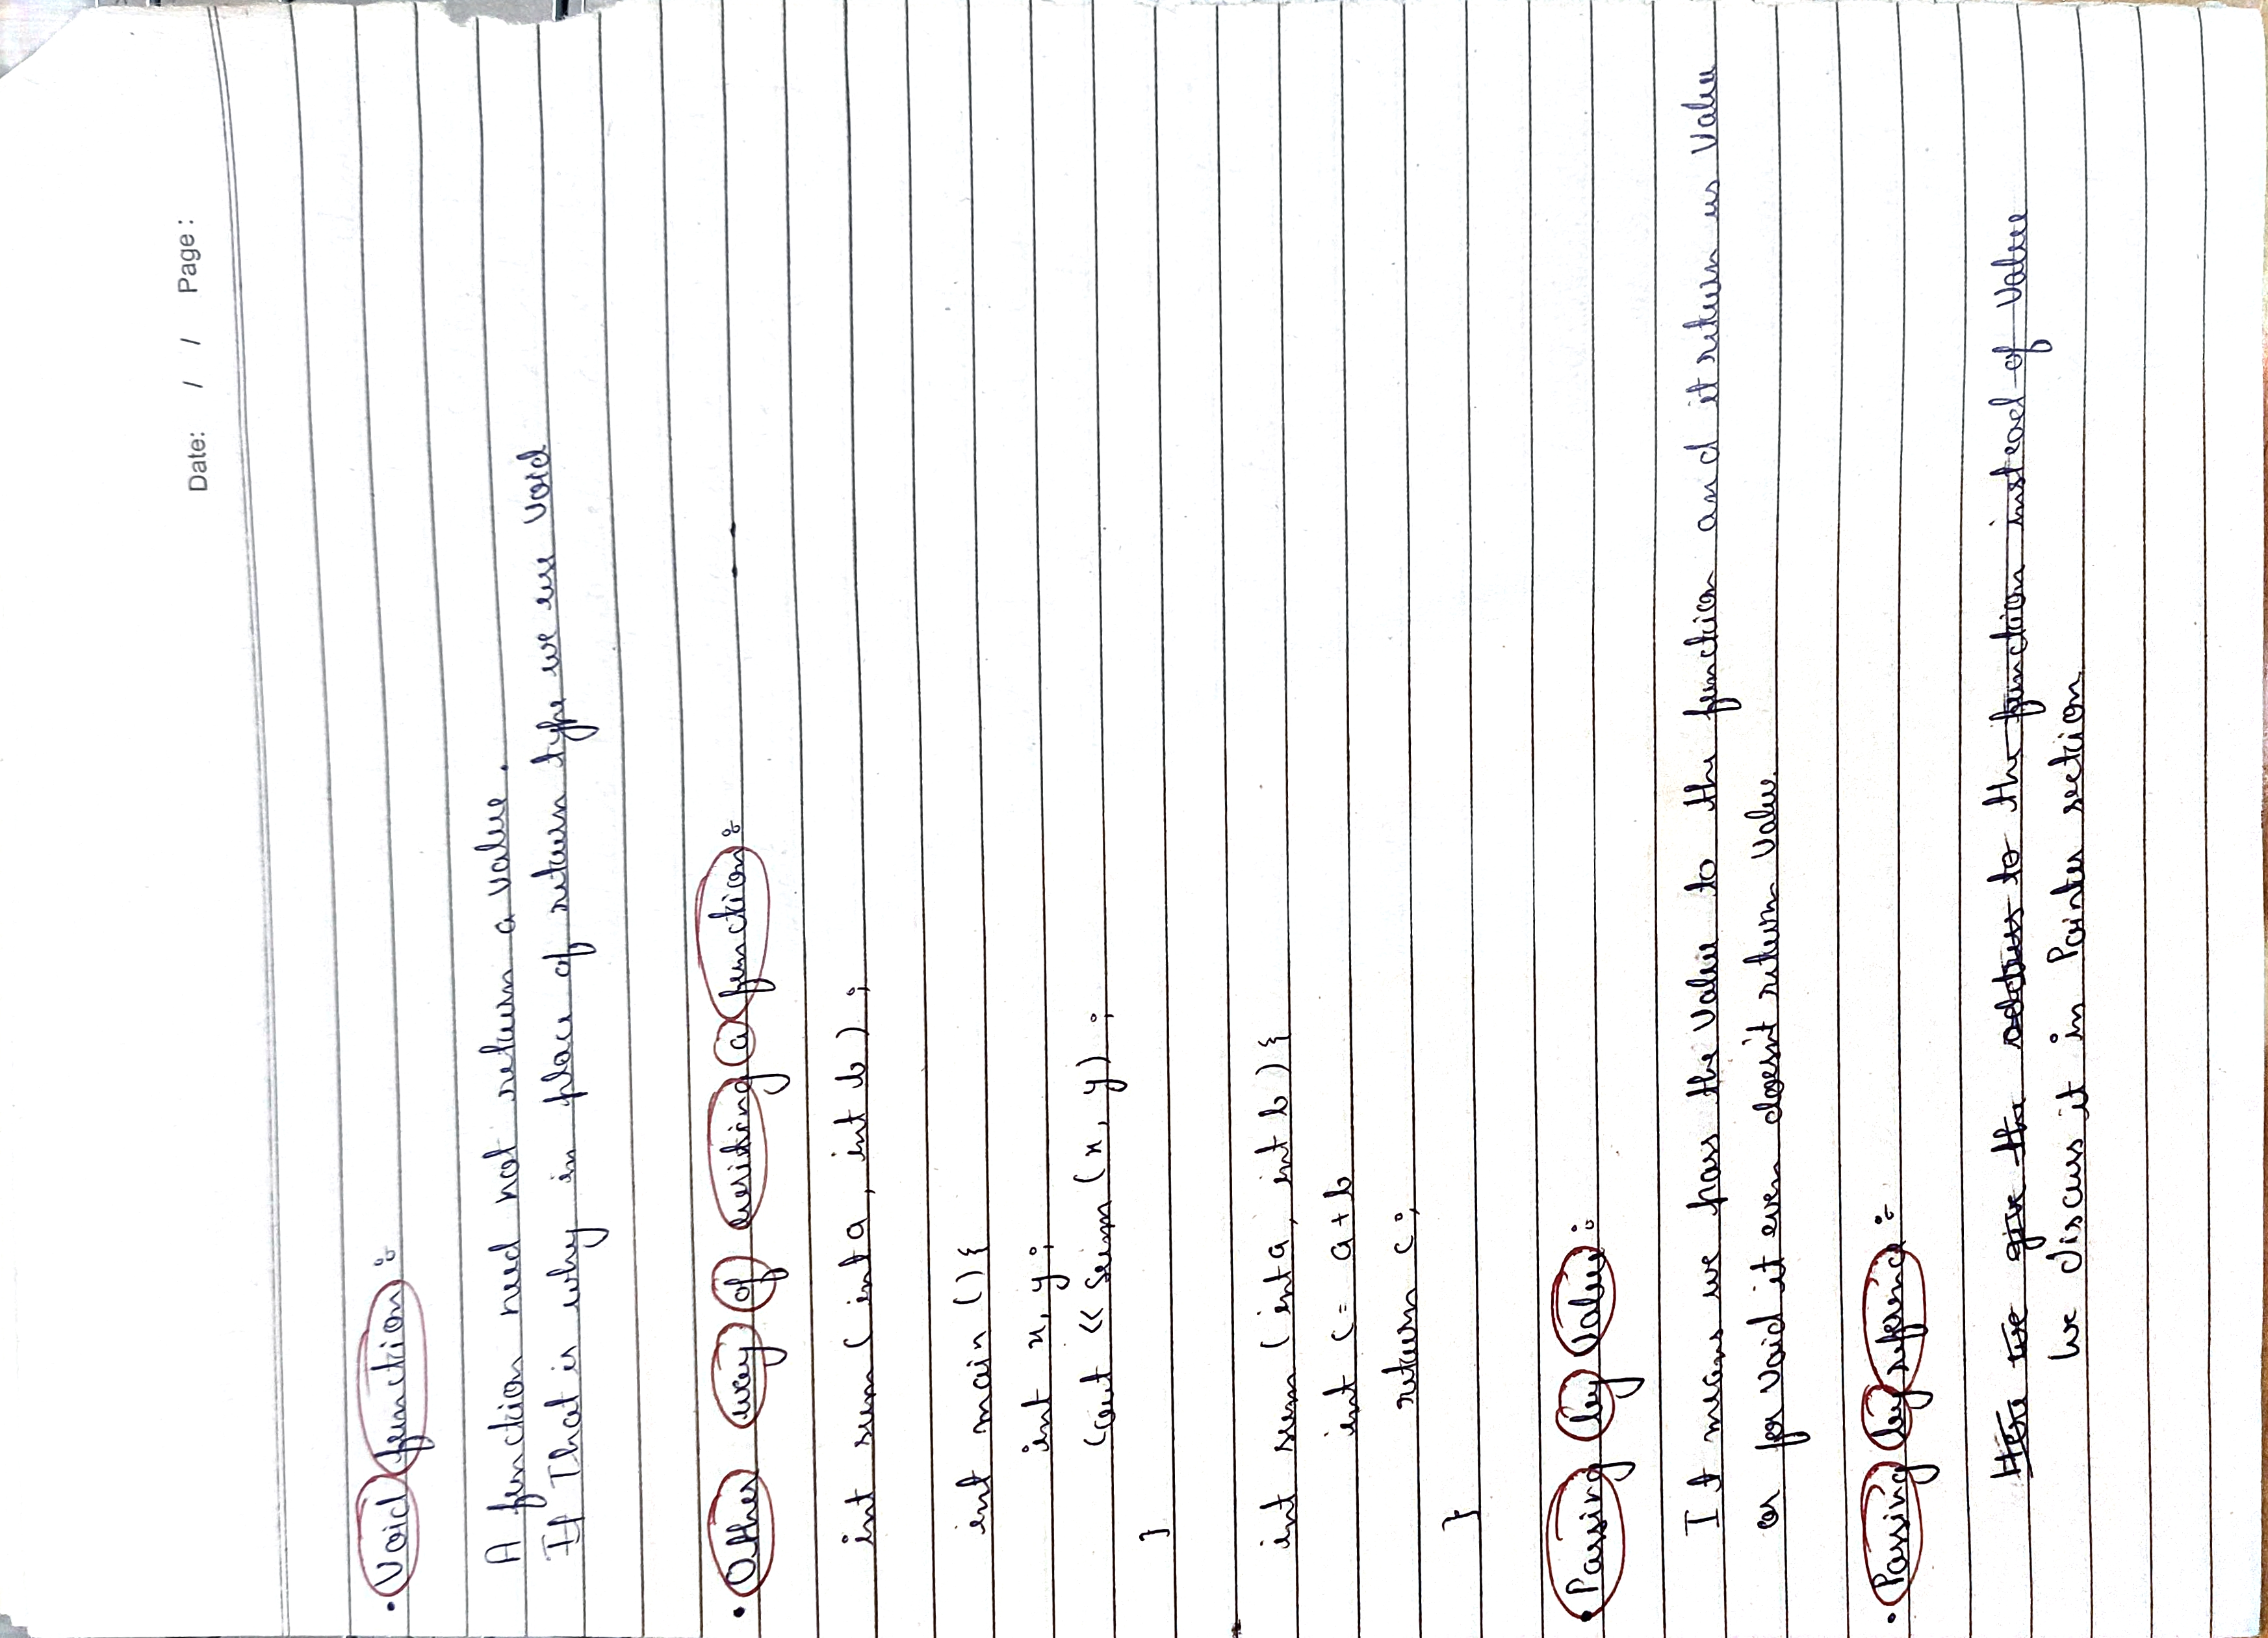 Date: / / Page:
• Void function :
A function need not return a value.
If That is why in place of return type we use Void
• Other way of writing a function :
int sum ( int a, int b ) ;
int main () {
int x, y ;
cout << sum (x, y) ;
}
int sum (int a, int b) {
int c = a + b
return c ;
}
• Passing by Value :
It means we pass the value to the function and it return us value
or for void it even doesn't return value.
• Passing by refrence :
Here we give the address to the function instead of value
we discuss it in Pointer section